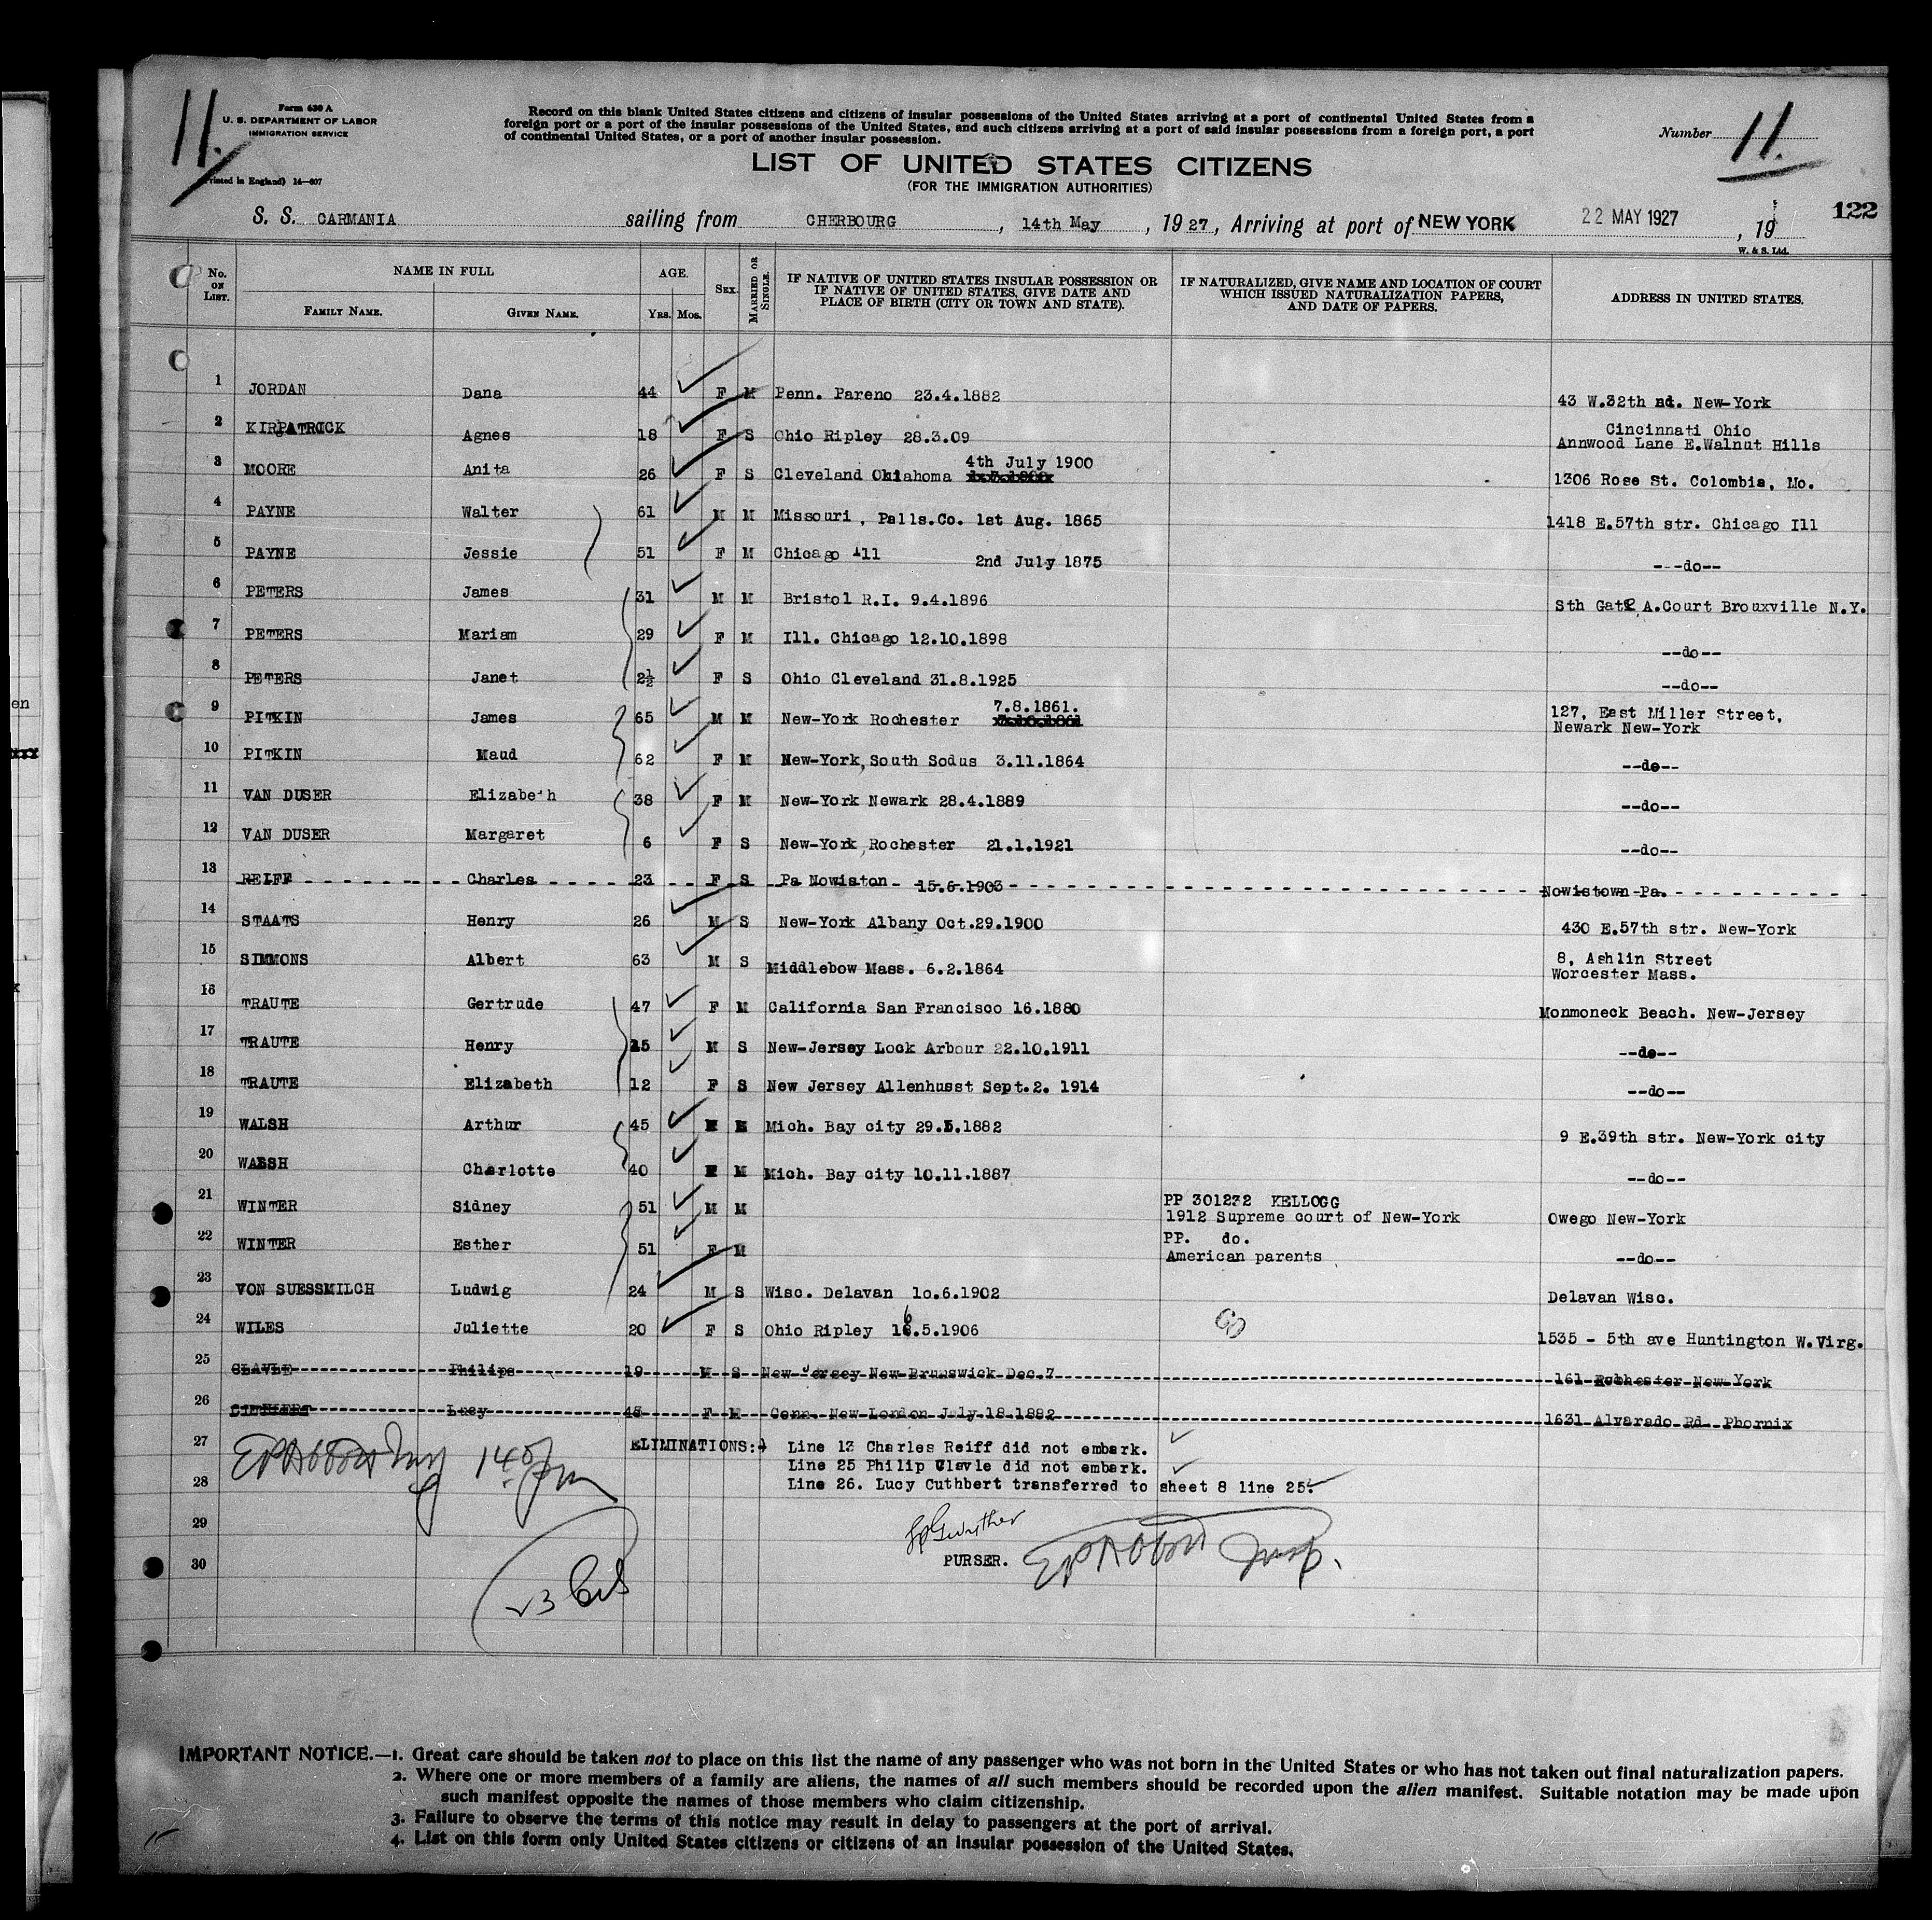 11.
Form 630 A
U. S. DEPARTMENT OF LABOR
IMMIGRATION SERVICE
Printed in England) 14—607
Record on this blank United States citizens and citizens of insular possessions of the United States arriving at a port of continental United States from a
foreign port or a port of the insular possessions of the United States, and such citizens arriving at a port of said insular possessions from a foreign port, a port
of continental United States, or a port of another insular possession.
Number 11.
LIST OF UNITED STATES CITIZENS
(FOR THE IMMIGRATION AUTHORITIES)
S. S. CARMANIA sailing from CHERBOURG, 14th May, 1927, Arriving at port of NEW YORK 22 MAY 1927, 19 122
W. & S. Ltd.
No. ON LIST. NAME IN FULL AGE. SEX. MARRIED OR SINGLE. IF NATIVE OF UNITED STATES INSULAR POSSESSION OR IF NATIVE OF UNITED STATES, GIVE DATE AND PLACE OF BIRTH (CITY OR TOWN AND STATE). IF NATURALIZED, GIVE NAME AND LOCATION OF COURT WHICH ISSUED NATURALIZATION PAPERS, AND DATE OF PAPERS. ADDRESS IN UNITED STATES.
FAMILY NAME. GIVEN NAME. YRS. MOS.
1 JORDAN Dana 44 F M Penn. Pareno 23.4.1882 43 W.32th nd. New-York
2 KIRPATRICK Agnes 18 F S Ohio Ripley 28.3.09 Cincinnati Ohio
Annwood Lane E.Walnut Hills
3 MOORE Anita 26 F S Cleveland Oklahoma 4th July 1900 1306 Rose St. Colombia, Mo.
4 PAYNE Walter 61 M M Missouri, Palls.Co. 1st Aug. 1865 1418 E.57th str. Chicago Ill
5 PAYNE Jessie 51 F M Chicago Ill 2nd July 1875 ---do--
6 PETERS James 31 M M Bristol R.I. 9.4.1896 Sth Gate A.Court Brouxville N.Y.
7 PETERS Mariam 29 F M Ill. Chicago 12.10.1898 --do--
8 PETERS Janet 2½ F S Ohio Cleveland 31.8.1925 --do--
9 PITKIN James 65 M M New-York Rochester 7.8.1861. 127, East Miller Street,
Newark New-York
10 PITKIN Maud 62 F M New-York, South Sodus 3.11.1864 --do--
11 VAN DUSER Elizabeth 38 F M New-York Newark 28.4.1889 --do--
12 VAN DUSER Margaret 6 F S New-York, Rochester 21.1.1921 --do--
13 REIFF Charles 23 F S Pa Nowiston 15.6.1903 Nowistown Pa.
14 STAATS Henry 26 M S New-York Albany Oct.29.1900 430 E.57th str. New-York
15 SIMMONS Albert 63 M S Middlebow Mass. 6.2.1864 8, Ashlin Street
Worcester Mass.
16 TRAUTE Gertrude 47 F M California San Francisco 16.1880 Monmoneck Beach. New-Jersey
17 TRAUTE Henry 15 M S New-Jersey Lock Arbour 22.10.1911 --do--
18 TRAUTE Elizabeth 12 F S New Jersey Allenhusst Sept.2. 1914 --do--
19 WALSH Arthur 45 Mich. Bay city 29.5.1882 9 E.39th str. New-York city
20 WALSH Charlotte 40 M Mich. Bay city 10.11.1887 --do--
21 WINTER Sidney 51 M M PP 301272 KELLOGG
1912 Supreme court of New-York Owego New-York
22 WINTER Esther 51 F M PP. do.
American parents --do--
23 VON SUESSMILCH Ludwig 24 M S Wisc. Delavan 10.6.1902 Delavan Wisc.
24 WILES Juliette 20 F S Ohio Ripley 16.5.1906 1535 - 5th ave Huntington W.Virg.
25 CLAVLE Philips 19 M S New Jersey New Brunswick Dec.7 161 Rochester New York
26 Lucy 45 F M Conn. New London July 18.1882 1631 Alvarado Rd. Phornix
27 ELIMINATIONS: Line 13 Charles Reiff did not embark.
Line 25 Philip Clavle did not embark.
28 Line 26. Lucy Cuthbert transferred to sheet 8 line 25.
29
30 PURSER.
IMPORTANT NOTICE.—1. Great care should be taken not to place on this list the name of any passenger who was not born in the United States or who has not taken out final naturalization papers.
2. Where one or more members of a family are aliens, the names of all such members should be recorded upon the alien manifest. Suitable notation may be made upon
such manifest opposite the names of those members who claim citizenship.
3. Failure to observe the terms of this notice may result in delay to passengers at the port of arrival.
4. List on this form only United States citizens or citizens of an insular possession of the United States.